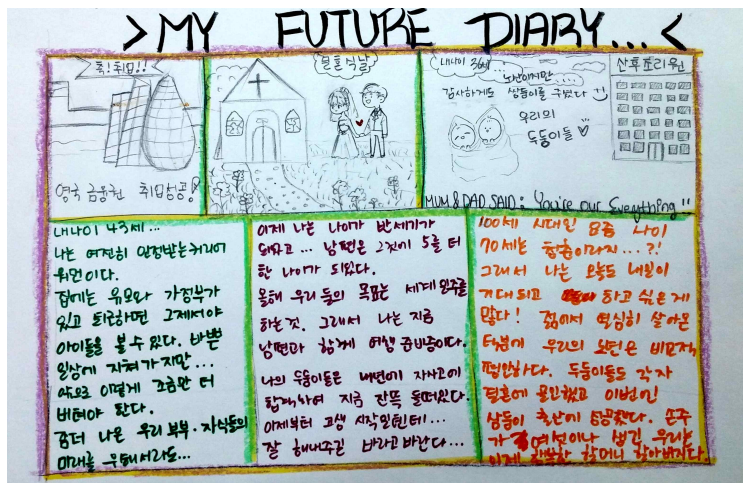 >MY FUTURE DIARY...<
축!취업!!
영국 금융권 취업성공!
결혼식날
내나이 36세...
노산이지만...
감사하게도 쌍둥이를 구었다
우리의
둑둥이들♥
산후조리원
MUM & DAD SAID: "You're our Everything"
내나이 43세...
나는 여전히 인정받는커리어
워먼이다.
집에는 유모와 가정부가
있고 퇴근하면 그제서야
아이들을 볼수있다. 바쁜
일상에 지쳐가지만...
앞으로 이렇게 조금만 더
버텨야 한다.
좀더 나은 우리부부·자식들의
미래를 위해서라도...
이제 나는 나이가 반세기가
되었고... 남편은 그것에 5를 더
한 나이가 되었다.
올해 우리들의 목표는 세계일주를
하는것. 그래서 나는 지금
남편과 함께 여행 준비중이다.
나의 두둥이들은 내년에 자사고에
합격하여 지금 잔뜩 들떠있다.
이제부터 고생 시작일텐데...
잘 해내주길 바라고바란다...
100세 시대인 요즘 나이
70세는 청춘이라지...?!
그래서 나는 오늘도 내일이
기대되고 하고 싶은게
많다! 젊어서 열심히 살아온
덕분에 우리의 노년은 비교적
평안하다. 두둥이들도 각자
결혼에 골인했고 이번엔
삼둥이 출산에 성공했다. 손주
가 여섯이나 생긴 우리는
이제 행복한 할머니 할아버지다.